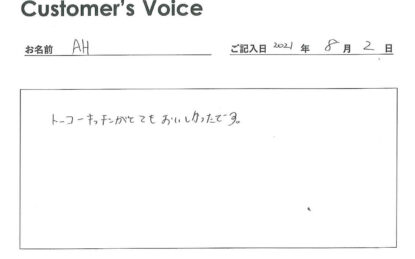 Customer's Voice
お名前 AH ご記入日 2021 年 8 月 2 日
トーコーキッチンがとてもおいしかったです。